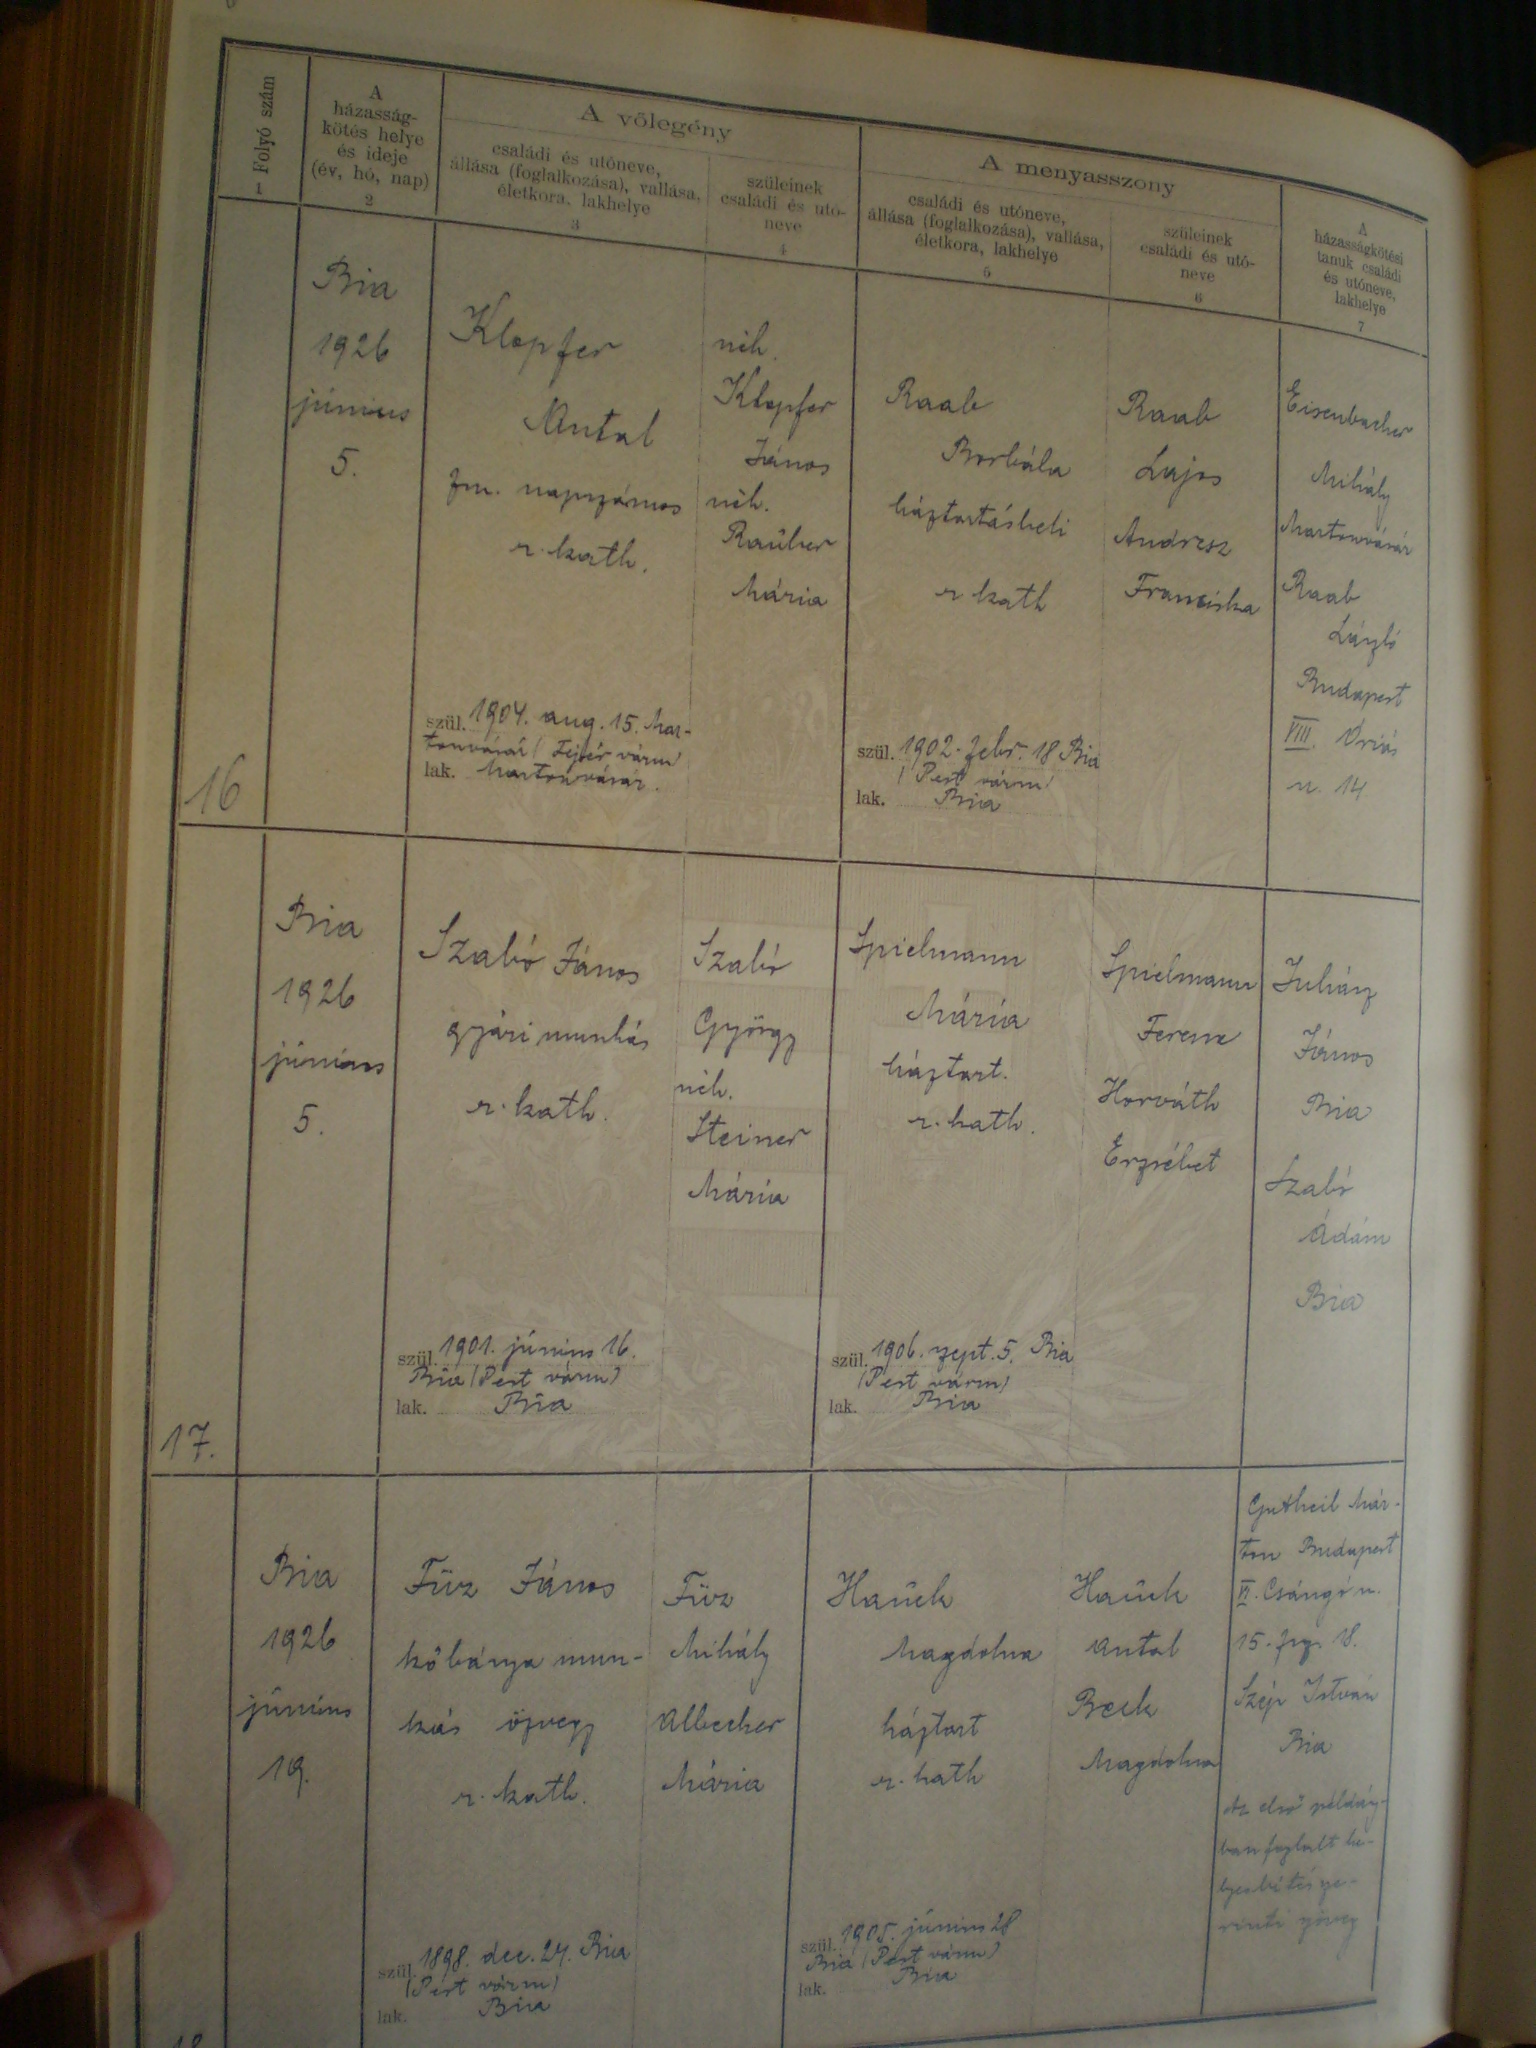 Folyó szám
1
A
házasság-
kötés helye
és ideje
(év, hó, nap)
2
A vőlegény
családi és utóneve,
állása (foglalkozása), vallása,
életkora, lakhelye
3
szüleinek
családi és utó-
neve
4
A menyasszony
családi és utóneve,
állása (foglalkozása), vallása,
életkora, lakhelye
5
szüleinek
családi és utó-
neve
6
A
házasságkötési
tanuk családi
és utóneve,
lakhelye
7
16
Bia
1926
június
5.
Klopfer
Antal
fm. napszámos
r. kath.
szül. 1904. aug. 15. Mar-
tonvásár (Fejér várm)
lak. Martonvásár.
néh.
Klopfer
János
néh.
Raüber
Mária
Raab
Borbála
háztartásbeli
r kath
szül. 1902. febr. 18 Bia
(Pest várm)
lak. Bia
Raab
Lajos
Andresz
Franciska
Eisenbacher
Mihály
Martonvásár
Raab
László
Budapest
VIII. Óriás
u. 14
17.
Bia
1926
június
5.
Szabó János
gyári munkás
r. kath.
szül. 1901. június 16.
Bia (Pest várm)
lak. Bia
Szabó
György
néh.
Steiner
Mária
Spielmann
Mária
háztart.
r. kath.
szül. 1906. szept. 5. Bia
(Pest várm)
lak. Bia
Spielmann
Ferenc
Horváth
Erzsébet
Juhász
János
Bia
Szabó
Ádám
Bia
18
Bia
1926
június
19.
Füz János
kőbánya mun-
kás özvegy
r. kath.
szül. 1898. dec. 24. Bia
(Pest várm)
lak. Bia
Füz
Mihály
Albecker
Mária
Haück
Magdolna
háztart
r. kath
szül. 1905. június 28
Bia (Pest várm)
lak. Bia
Haück
Antal
Beck
Magdolna
Gutheil Már-
ton Budapest
VI. Csángó u.
15.
Szép István
Bia
Az első példány-
ban foglalt he-
lyesbítés sze-
rinti szöveg